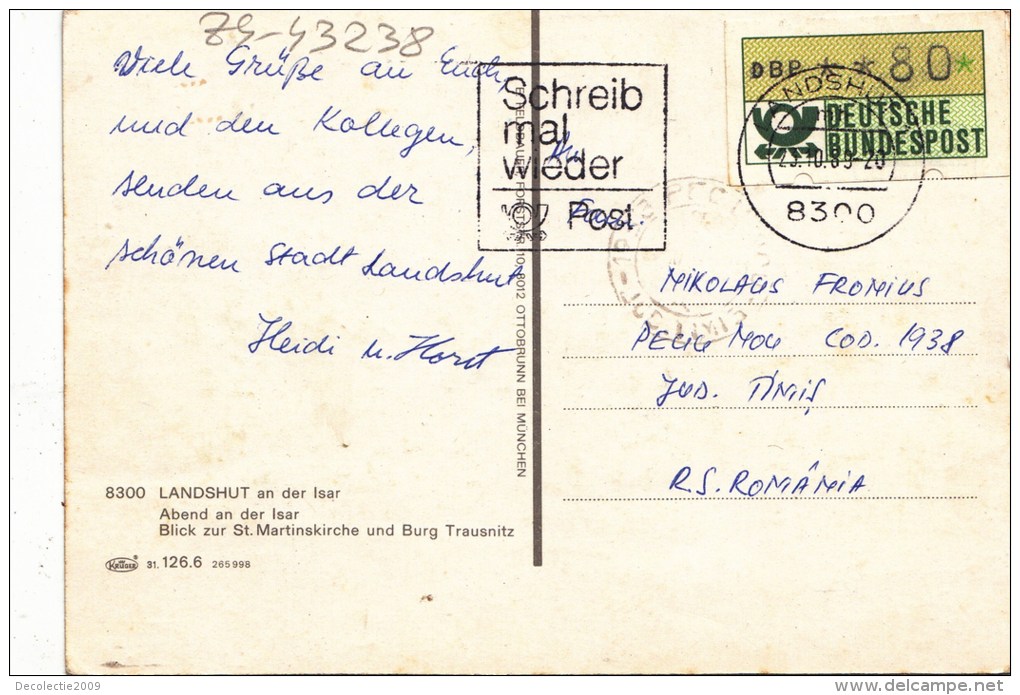 79-43238
Viele Grüße an Euch
und den Kollegen,
senden aus der
schönen Stadt Landshut
Heidi u. Horst
Schreib
mal
wieder
Post
An
Fam.
DBP * *80*
DEUTSCHE
BUNDESPOST
LANDSHUT
8300
MIKOLAUS FRONIUS
PECIU NOU COD. 1938
JUD. TIMIȘ
R.S. ROMÂNIA
8012 OTTOBRUNN BEI MÜNCHEN
8300 LANDSHUT an der Isar
Abend an der Isar
Blick zur St. Martinskirche und Burg Trausnitz
KRÜGER 31. 126.6 265998
Decolectie2009
delcampe.net